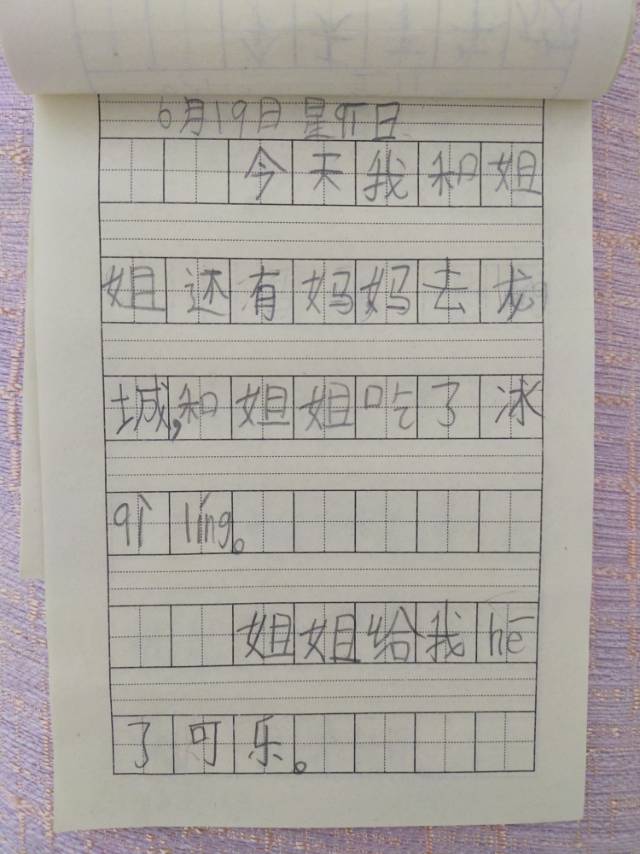 6月19日星qī日
今天我和姐
姐还有妈妈去龙
城,和姐姐吃了冰
qí líng。
姐姐给我hē
了可乐。